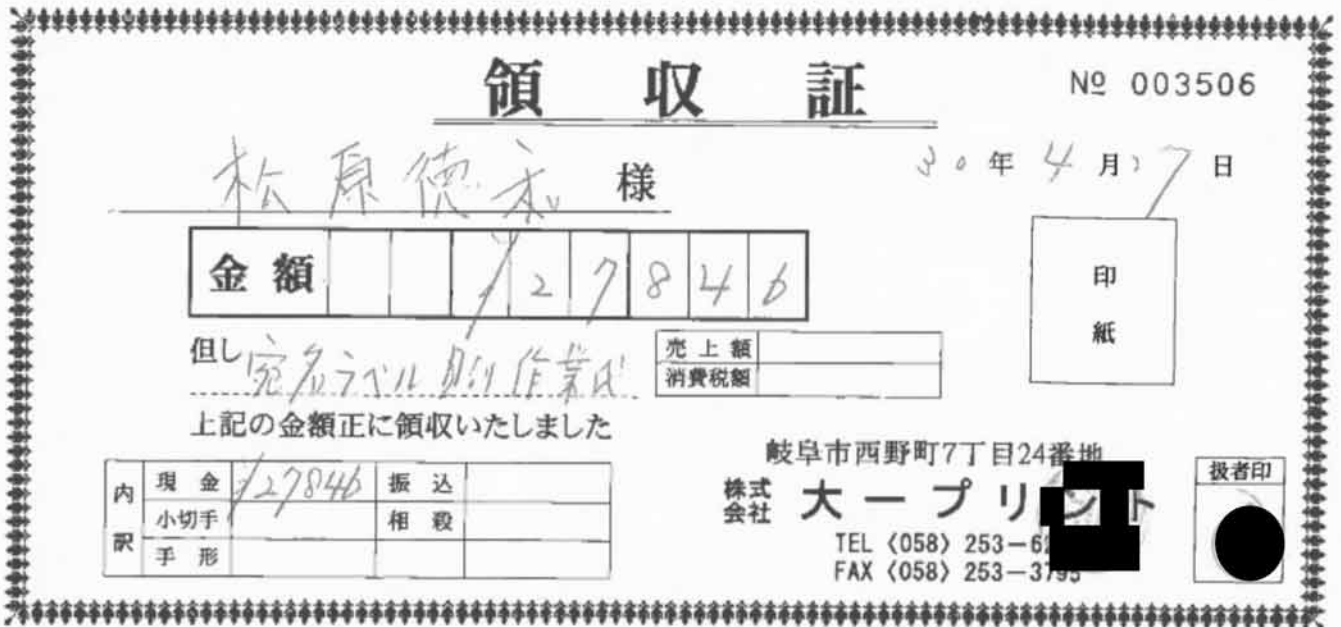 領収証
№ 003506
松原徳和 様
30年4月27日
金額 ¥27846
印紙
但し 宛名ラベル貼り作業代
売上額
消費税額
上記の金額正に領収いたしました
内訳
現金 ¥27846 振込
小切手 相殺
手形
岐阜市西野町7丁目24番地
株式会社 大一プリント
TEL〈058〉253−6
FAX〈058〉253−3795
扱者印